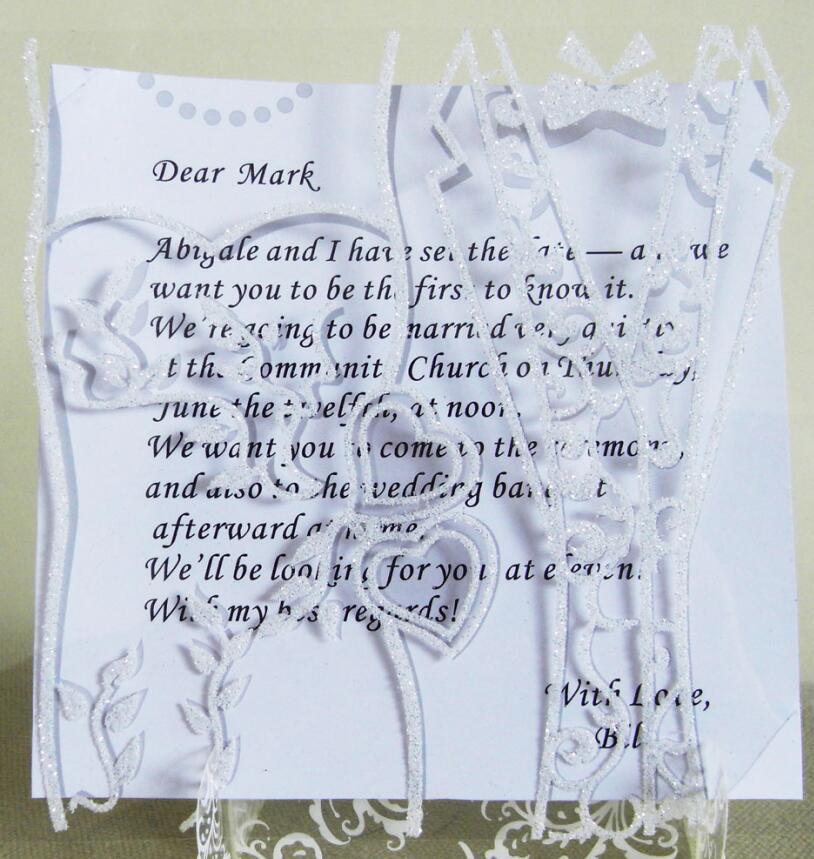 Dear Mark,
Abigale and I have set the date — and we
want you to be the first to know it.
We're going to be married very quietly
at the Community Church on Thursday,
June the twelfth, at noon.
We want you to come to the ceremony,
and also to the wedding banquet
afterward at home.
We'll be looking for you at eleven.
With my best regards!
With Love,
Bill